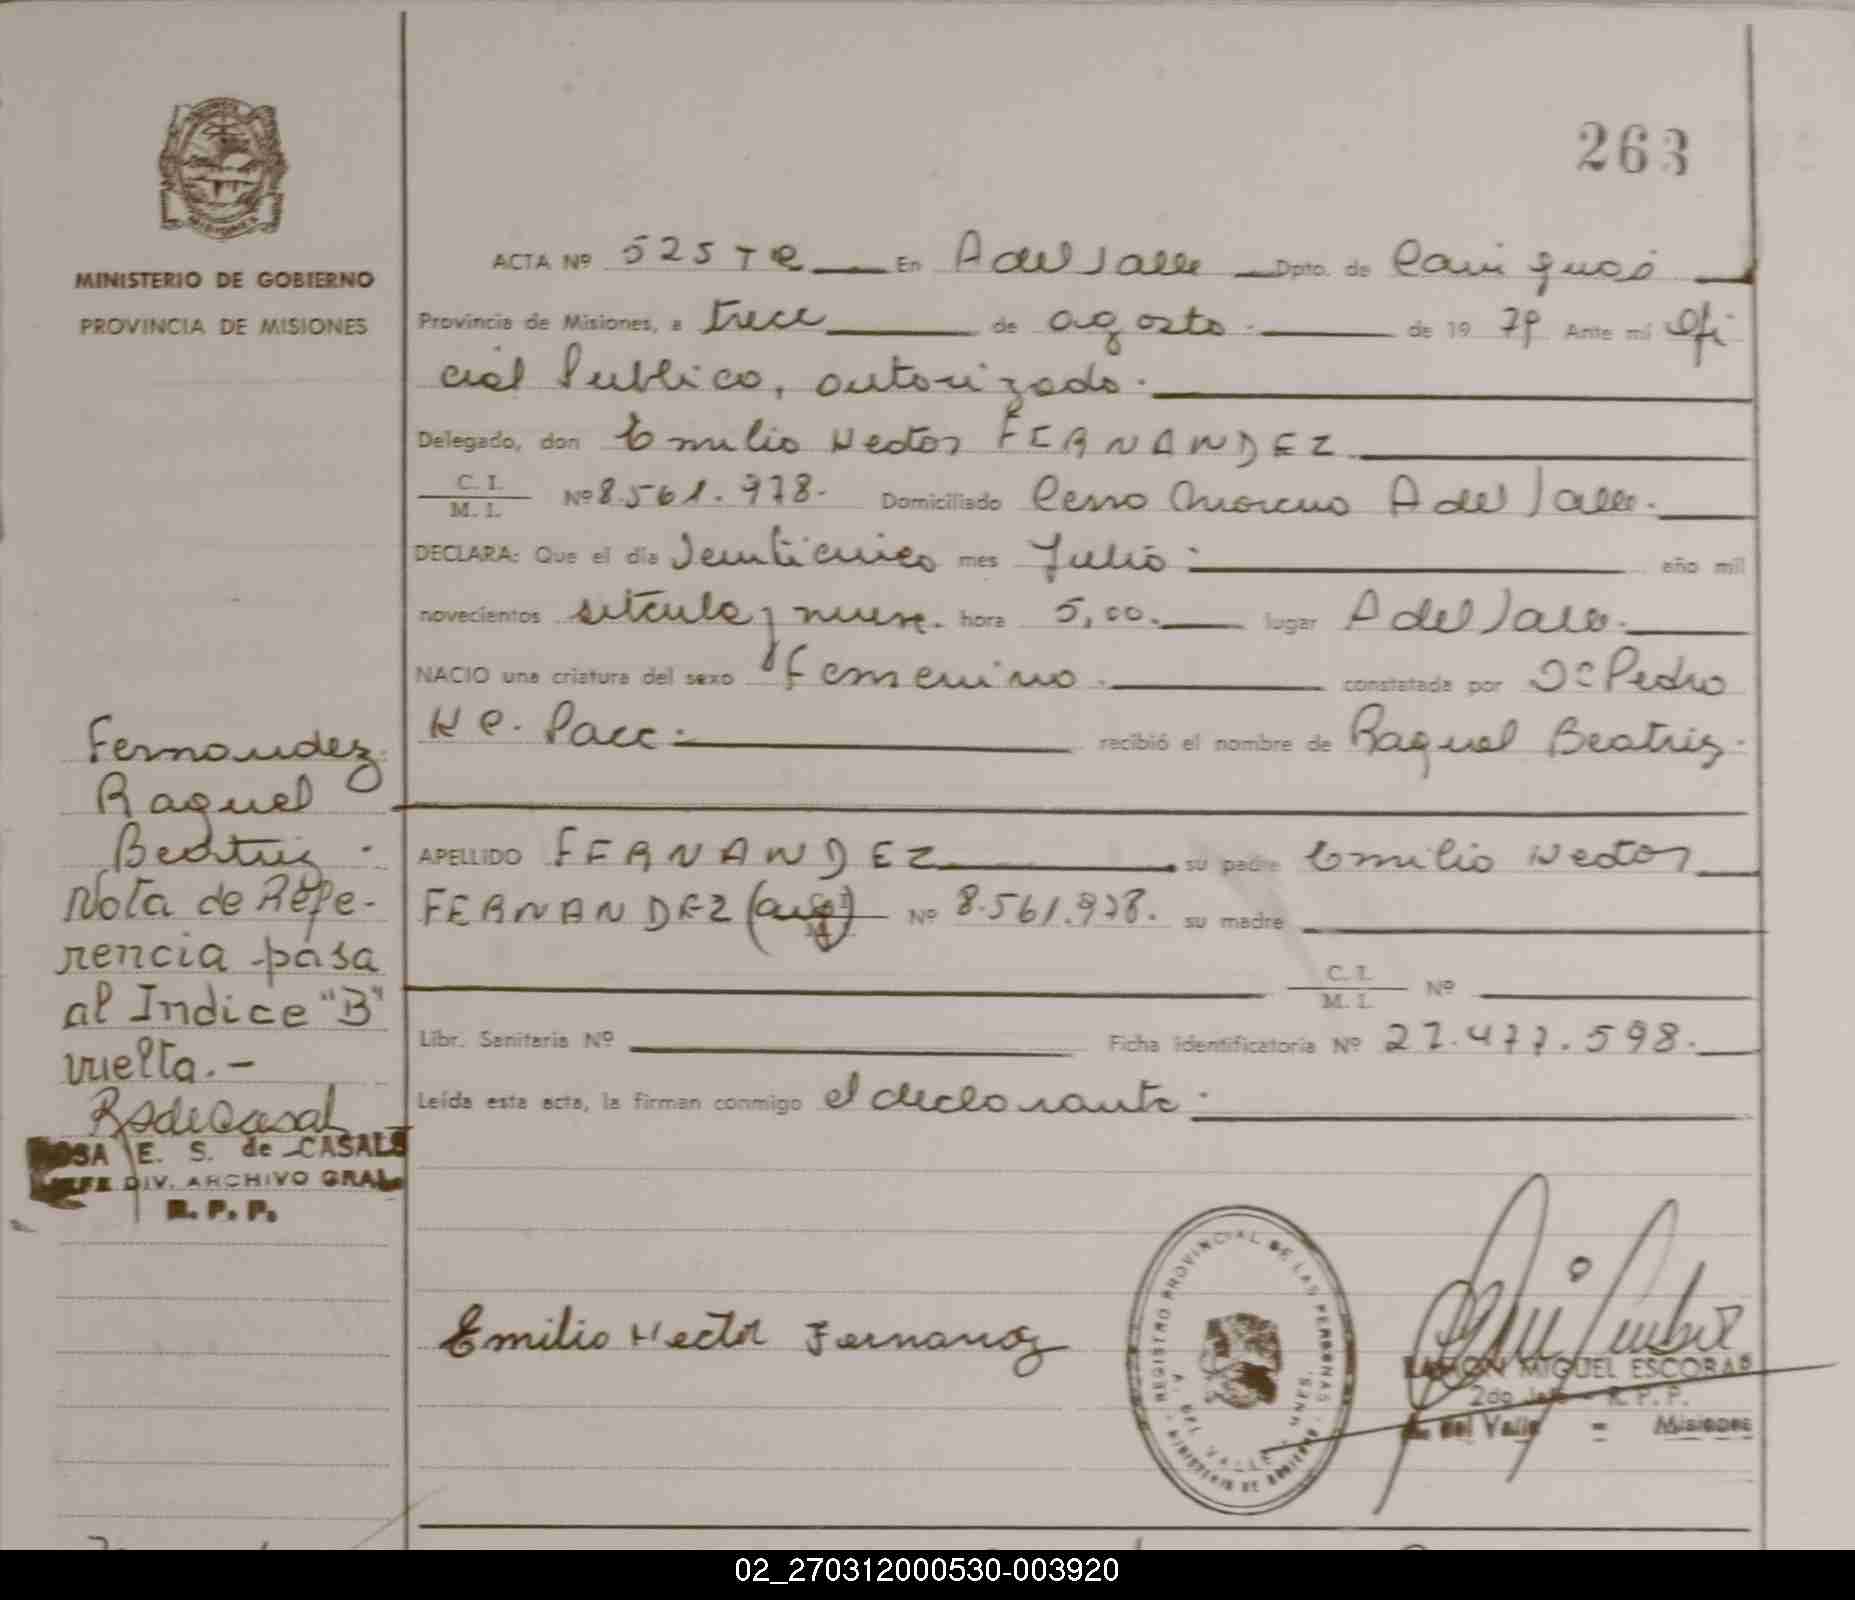 263
MINISTERIO DE GOBIERNO
PROVINCIA DE MISIONES
ACTA Nº 525 T R En A del Valle Dpto. de Cainguás
Provincia de Misiones, a trece de agosto. de 19 79 Ante mí Ofi
cial Publico, autorizado.
Delegado, don Emilio Hector FERNANDEZ
C. I.
M. I. Nº 8.561.978. Domiciliado Cerro Moreno A del Valle.
DECLARA: Que el día Veinticinco mes Julio. año mil
novecientos setenta y nueve. hora 5,00. lugar A del Valle.
NACIO una criatura del sexo femenino. constatada por Dº Pedro
H C. Pacc. recibió el nombre de Raquel Beatriz.
APELLIDO FERNANDEZ su padre Emilio Hector
FERNANDEZ (arg) Nº 8.561.978. su madre
C. I.
M. I. Nº
Libr. Sanitaria Nº Ficha Identificatoria Nº 27.477.598.
Leída esta acta, la firman conmigo el declarante.
Fernandez
Raquel
Beatriz.
Nota de Refe-
rencia pasa
al Indice "B"
vuelta.-
RSdeCasals
ROSA E. S. de CASALS
JEFE DIV. ARCHIVO GRAL.
R. P. P.
Emilio Hector Fernandez
REGISTRO PROVINCIAL DE LAS PERSONAS
A. DEL VALLE MNES.
MINISTERIO DE GOBIERNO
RAMON MIGUEL ESCOBAR
2do Jefe - R. P. P.
A. del Valle = Misiones
02_270312000530-003920